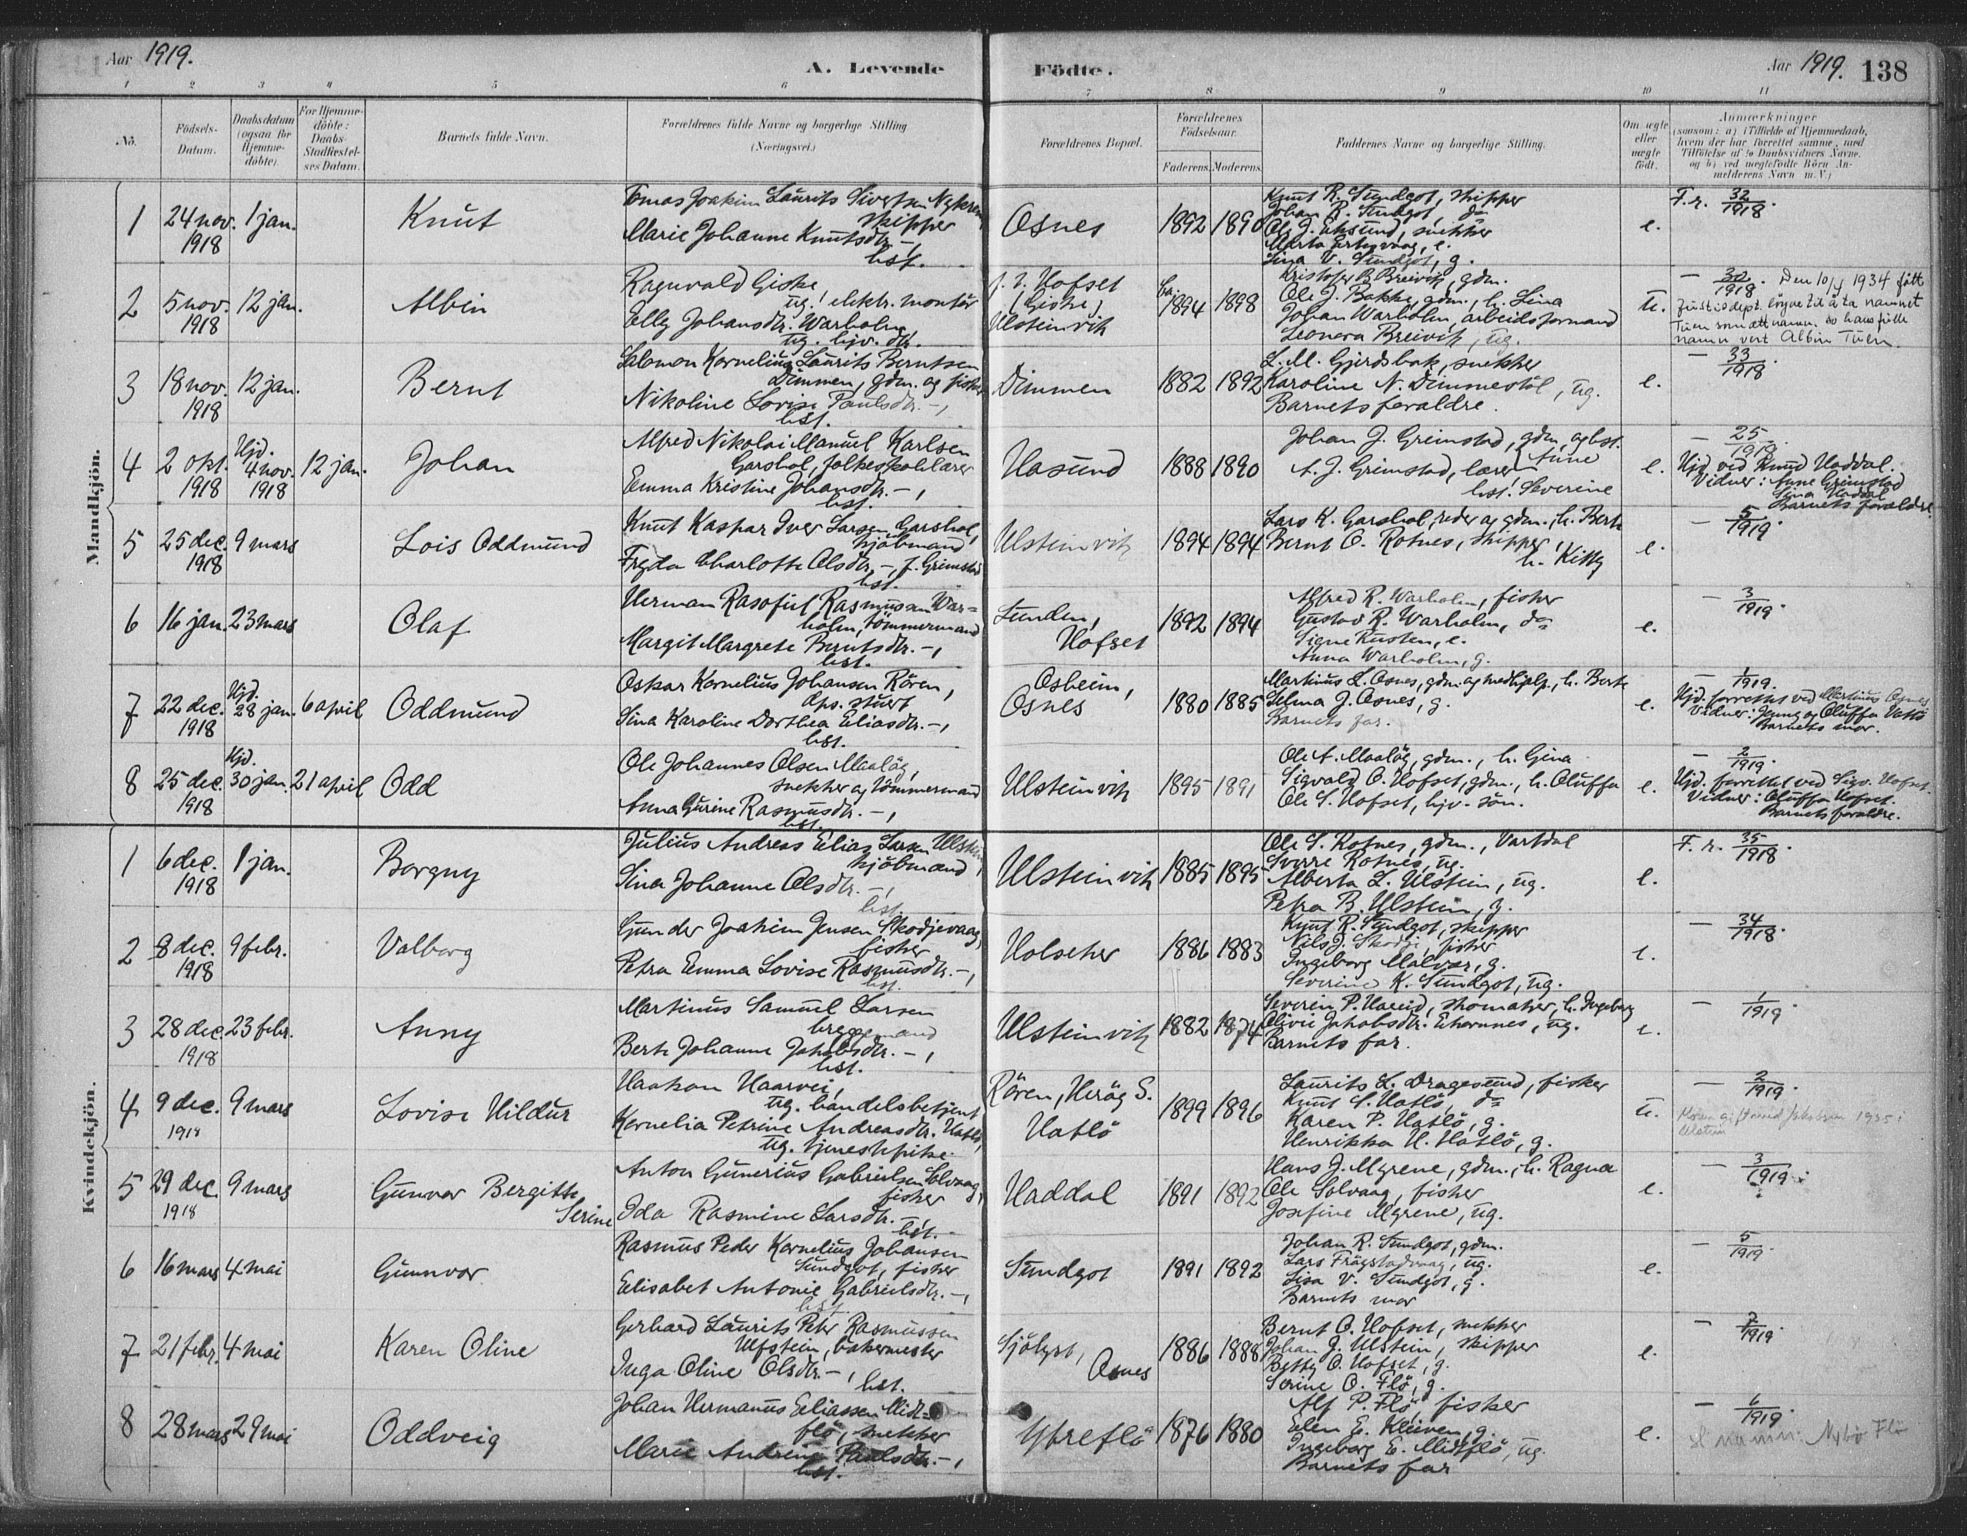 Aar 1919.
A. Levende
Födte.
Aar 1919. 138
1 2 3 4 5 6 7 8 9 10 11
No.
Födsels-Datum.
Daabsdatum (ogsaa for Hjemme-döbte).
For Hjemme-döbte: Daabs-Stadfæstel-ses Datum.
Barnets fulde Navn.
Forældrenes fulde Navne og borgerlige Stilling
(Næringsvei.)
Forældrenes Bopæl.
Forældrenes Födselsaar.
Faderens. Moderens.
Faddernes Navne og borgerlige Stilling.
Om ægte eller uægte födt.
Anmærkninger
(saasom: a) i Tilfælde af Hjemmedaab, hvem der har forrettet samme, med Tilföielse af to Daabsvidners Navne, og b) ved uægtefödte Börn An-melderens Navn m. V.)
Mandkjön.
1 24 nov. 1918 1 jan.
Knut
Tomas Joakim Laurits Sivertsen
skipper
Marie Johanne Knutsdtr. –,
hst.
Osnes
1892 1890
Knut R. Sundgot, skipper
Johan R. Sundgot, do
snekker
Sina V. Sundgot, g.
e.
F. r. 32/1918.
2 5 nov. 1918 12 jan.
Albin
Ragnvald Giske
ug. elektr. montör
Elly Johansdtr. Warholm,
ug. hjv. dtr.
f. t. Hofset
(Giske)
Ulsteinvik
1894 1898
Kristofer B. Breivik, gdm.
Ole J. Bakke, gdm., h. Lina
Johan Warholm, arbeidsformand
Leonora Breivik, ug.
u.
– 32/1918. Den 10/4 1934 fått
justisdept. löyve til å ta namnet
Tuen som ættnamn, so hans fulle
namn vert Albin Tuen.
3 18 nov. 1918 12 jan.
Bernt
Salomon Kornelius Laurits Berntsen
Dimmen, gdm. og fisker
Nikoline Lovise Paulsdtr. –,
hst.
Dimmen
1882 1892
L. M. Gjerdsbak, snekker
Karoline N. Dimmestöl, ug.
Barnets foraldre.
e.
– 33/1918.
4 2 okt. 1918 Hjd. 4 nov. 1918 12 jan.
Johan
Alfred Nikolai Manuel Karlsen
Garshol, folkeskolelærer
Emma Kristine Johansdtr. –,
hst.
Hasund
1888 1890
Johan J. Grimstad, gdm. og hst.
A. J. Grimstad, lærer Anne
hst. Severine
e.
– 25/1918.
Hjd. ved Knud Haddal.
Vidner: Anne Grimstad
Lina Haddal
Barnets forældre.
5 25 dec. 1918 9 mars
Lois Oddmund
Knut Kaspar Iver Larsen Garshol,
kjöbmand
Fryda Charlotte Olsdtr. –, f. Grimstad
hst.
Ulsteinvik
1894 1894
Lars K. Garshol, reder og gdm., h. Berte
Bernt O. Rotnes, skipper,
h. Kitty
e.
– 5/1919.
6 16 jan. 23 mars
Olaf
Herman Rasoful Rasmussen War-
holm, tömmermand
Margit Margrete Berntsdtr. –,
hst.
Sunden,
Hofset
1892 1894
Alfred R. Warholm, fisker
Gustav R. Warholm, do
Signe Rusten, e.
Anna Warholm, g.
e.
– 3/1919.
7 22 dec. 1918 Hjd. 28 jan. 6 april
Oddmund
Oskar Kornelius Johansen Rören,
dps. stuert
Sina Karoline Dorthea Eliasdtr. –,
hst.
Osheim,
Osnes
1880 1885
Martinus L. Osnes, gdm. og medhjelp., h. Berte
Selma J. Osnes, g.
Barnets far.
e.
– 1/1919.
Hjd. forrettet ved Martinus Osnes
Vidner: Jenny og Oluffa Hatlö
Barnets mor.
8 25 dec. 1918 Hjd. 30 jan. 21 april
Odd
Ole Johannes Olsen Maalög,
snekker og tömmermand
Anna Gurine Rasmusdtr. –,
hst.
Ulsteinvik
1895 1891
Ole A. Maalög, gdm., h. Gina
Sigvald O. Hofset, gdm., h. Oluffa
Ole S. Hofset, hjv. sön.
e.
– 2/1919.
Hjd. forrettet ved Sigv. Hofset.
Vidner: Oluffa Hofset.
Barnets foraldre.
Kvindekjön.
1 6 dec. 1918 1 jan.
Borgny
Julius Andreas Elias Larsen Ulstein,
kjöbmand
Sina Johanne Olsdtr. –,
hst.
Ulsteinvik
1885 1895
Ole S. Rotnes, gdm., Vartdal
Sverre Rotnes, ug.
Alberta L. Ulstein, ug.
Petra B. Ulstein, g.
e.
F. r. 35/1918.
2 8 dec. 1918 9 febr.
Valborg
Gunder Joakim Jensen Skodjevaag,
fisker
Petra Emma Lovise Rasmusdtr. –,
hst.
Holseker
1886 1883
Knut R. Sundgot, skipper
Nils J. Skodje, fisker
Ingeborg Malvar, g.
Severine K. Sundgot, ug.
e.
– 34/1918.
3 28 dec. 1918 23 febr.
Anny
Martinus Samuel Larsen
bryggemand
Berte Johanne Jakobsdtr. –,
hst.
Ulsteinvik
1882 1874
Severin P. Hareid, skomaker, h. Ingeborg
Olivie Jakobsdtr. Ekornnes, ug.
Barnets far.
e.
– 1/1919
4 9 dec. 1918 9 mars
Lovise Hildur
Haakon Haarvei,
ug. handelsbetjent
Kornelia Petrine Andreasdtr. Hatlö,
ug. tjenestpike.
Rören, Herög S.
Hatlö
1899 1896
Laurits L. Dragesund, fisker
Knut S. Hatlö, do
Karen P. Hatlö, g.
Henrikka H. Hatlö, g.
u.
– 2/1919.
Moren gift med Jakobsen 1935 i
Ulstein
5 29 dec. 1918 9 mars
Gunvor Bergitte
Serine
Anton Gunerius Gabrielsen Solvaag,
fisker
Ida Rasmine Larsdtr. –,
hst.
Haddal
1891 1892
Hans J. Myrene, gdm., h. Ragna
Ole Solvaag, fisker
Josefine Myrene, ug.
e.
– 3/1919.
6 16 mars 4 mai
Gunnvor
Rasmus Peder Kornelius Johansen
Sundgot, fisker
Elisabet Antonie Gabrielsdtr. –,
hst.
Sundgot
1891 1892
Johan R. Sundgot, gdm.
Lars Frögstadvaag, ug.
Lisa V. Sundgot, g.
Barnets mor
e.
– 5/1919.
7 21 febr. 4 mai
Karen Oline
Gerhard Laurits Peter Rasmussen
Ulfstein, bakermester
Inga Oline Olsdtr. –,
hst.
Sjölyst,
Osnes
1886 1888
Bernt O. Hofset, snekker
Johan J. Ulstein, skipper
Betty O. Hofset, g.
Serine O. Flö, g.
e.
– 7/1919.
8 28 mars 29 mai
Oddveig
Johan Hermanus Eliassen Midt-
flö, snekker
Marie Andrine Paulsdtr. –,
hst.
Ytreflö
1876 1880
Alf P. Flö, fisker
Elen E. Kleiven, g.
Ingeborg E. Midtflö, ug.
Barnets far
e.
– 6/1919.
sl. namn: Nybö Flö